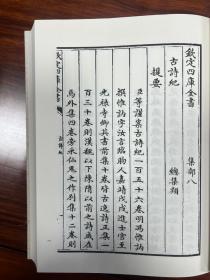 欽定四庫全書
集部八
古詩紀
總集類
提要
臣等謹案古詩紀一百五十六卷明馮惟訥
撰惟訥字汝言臨朐人嘉靖戊戌進士官至
光祿寺卿其書前集十卷皆古逸詩正集一
百三十卷則漢魏以下陳隋以前之詩咸在
焉外集四卷旁采仙鬼之作別集十二卷則
古詩紀